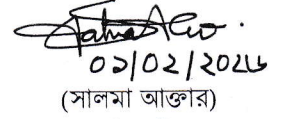 ০১/০২/২০২৬
(সালমা আক্তার)